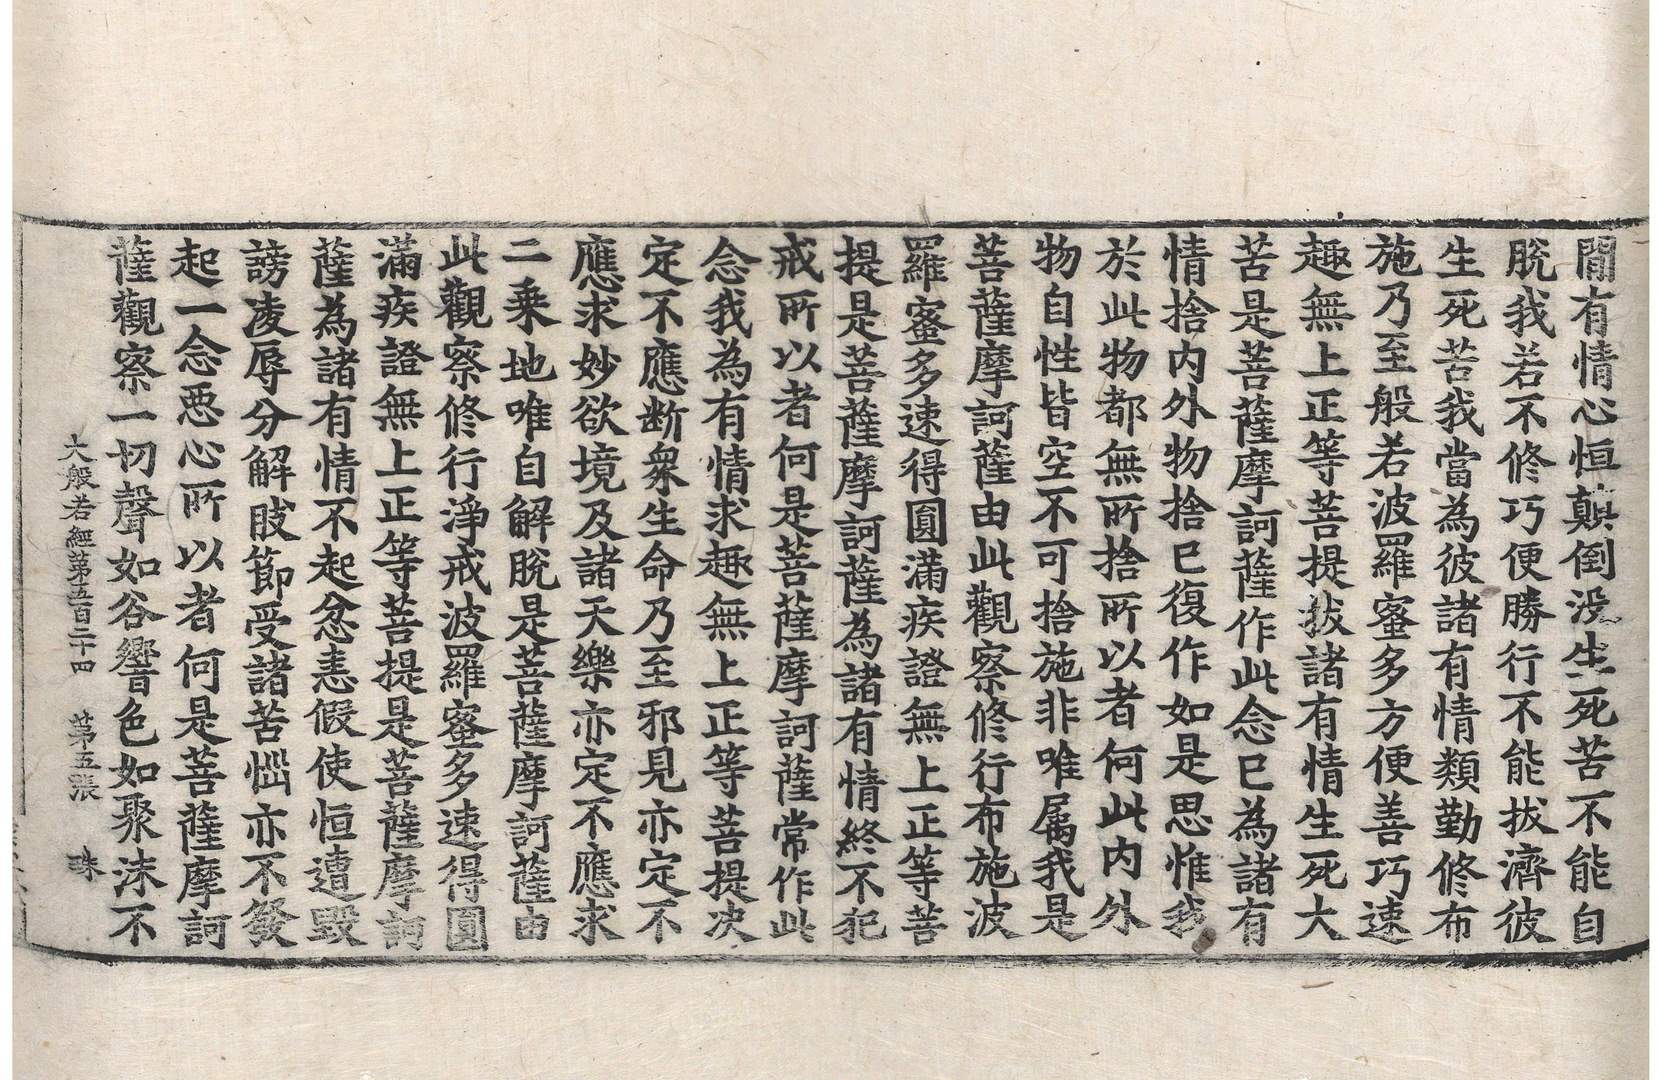 間有情心恒顛倒没生死苦不能自
脫我若不修巧便勝行不能拔濟彼
生死苦我當為彼諸有情類勤修布
施乃至般若波羅蜜多方便善巧速
趣無上正等菩提拔諸有情生死大
苦是菩薩摩訶薩作此念已為諸有
情捨內外物捨已復作如是思惟我
於此物都無所捨所以者何此內外
物自性皆空不可捨施非唯屬我是
菩薩摩訶薩由此觀察修行布施波
羅蜜多速得圓滿疾證無上正等菩
提是菩薩摩訶薩為諸有情終不犯
戒所以者何是菩薩摩訶薩常作此
念我為有情求趣無上正等菩提決
定不應斷衆生命乃至邪見亦定不
應求妙欲境及諸天樂亦定不應求
二乘地唯自解脫是菩薩摩訶薩由
此觀察修行淨戒波羅蜜多速得圓
滿疾證無上正等菩提是菩薩摩訶
薩為諸有情不起忿恚假使恒遭毀
謗凌辱分解肢節受諸苦惱亦不發
起一念惡心所以者何是菩薩摩訶
薩觀察一切聲如谷響色如聚沫不
大般若經第五百二十四 第五張 珠